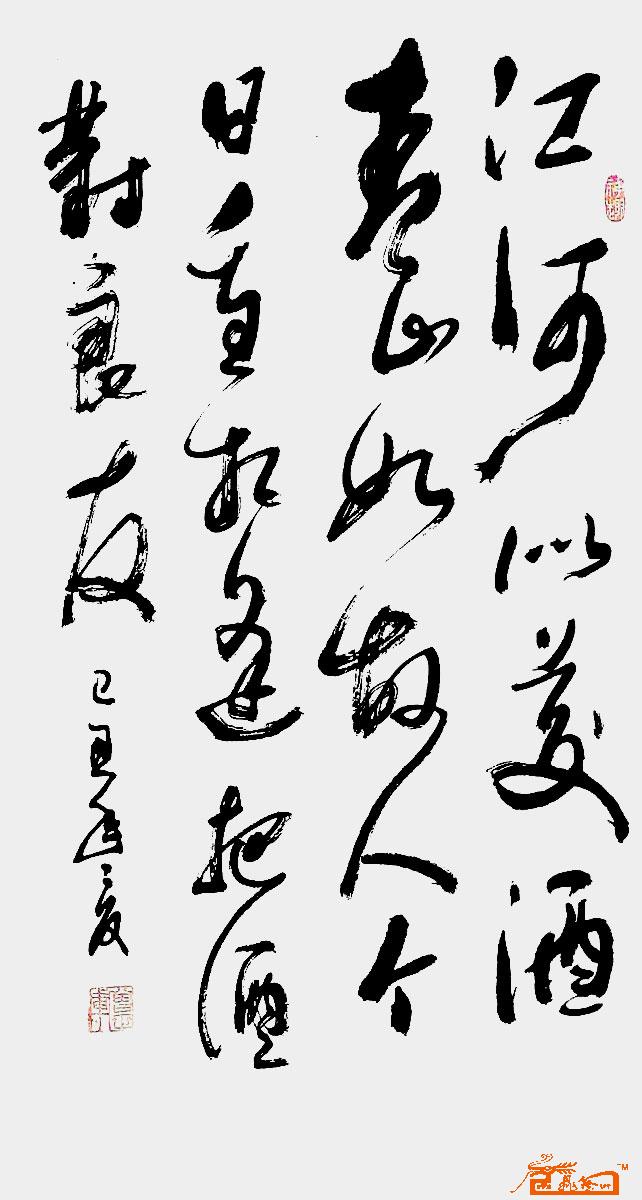 江河似美酒
青山如故人今
日重相逢把酒
對良友
己丑年夏